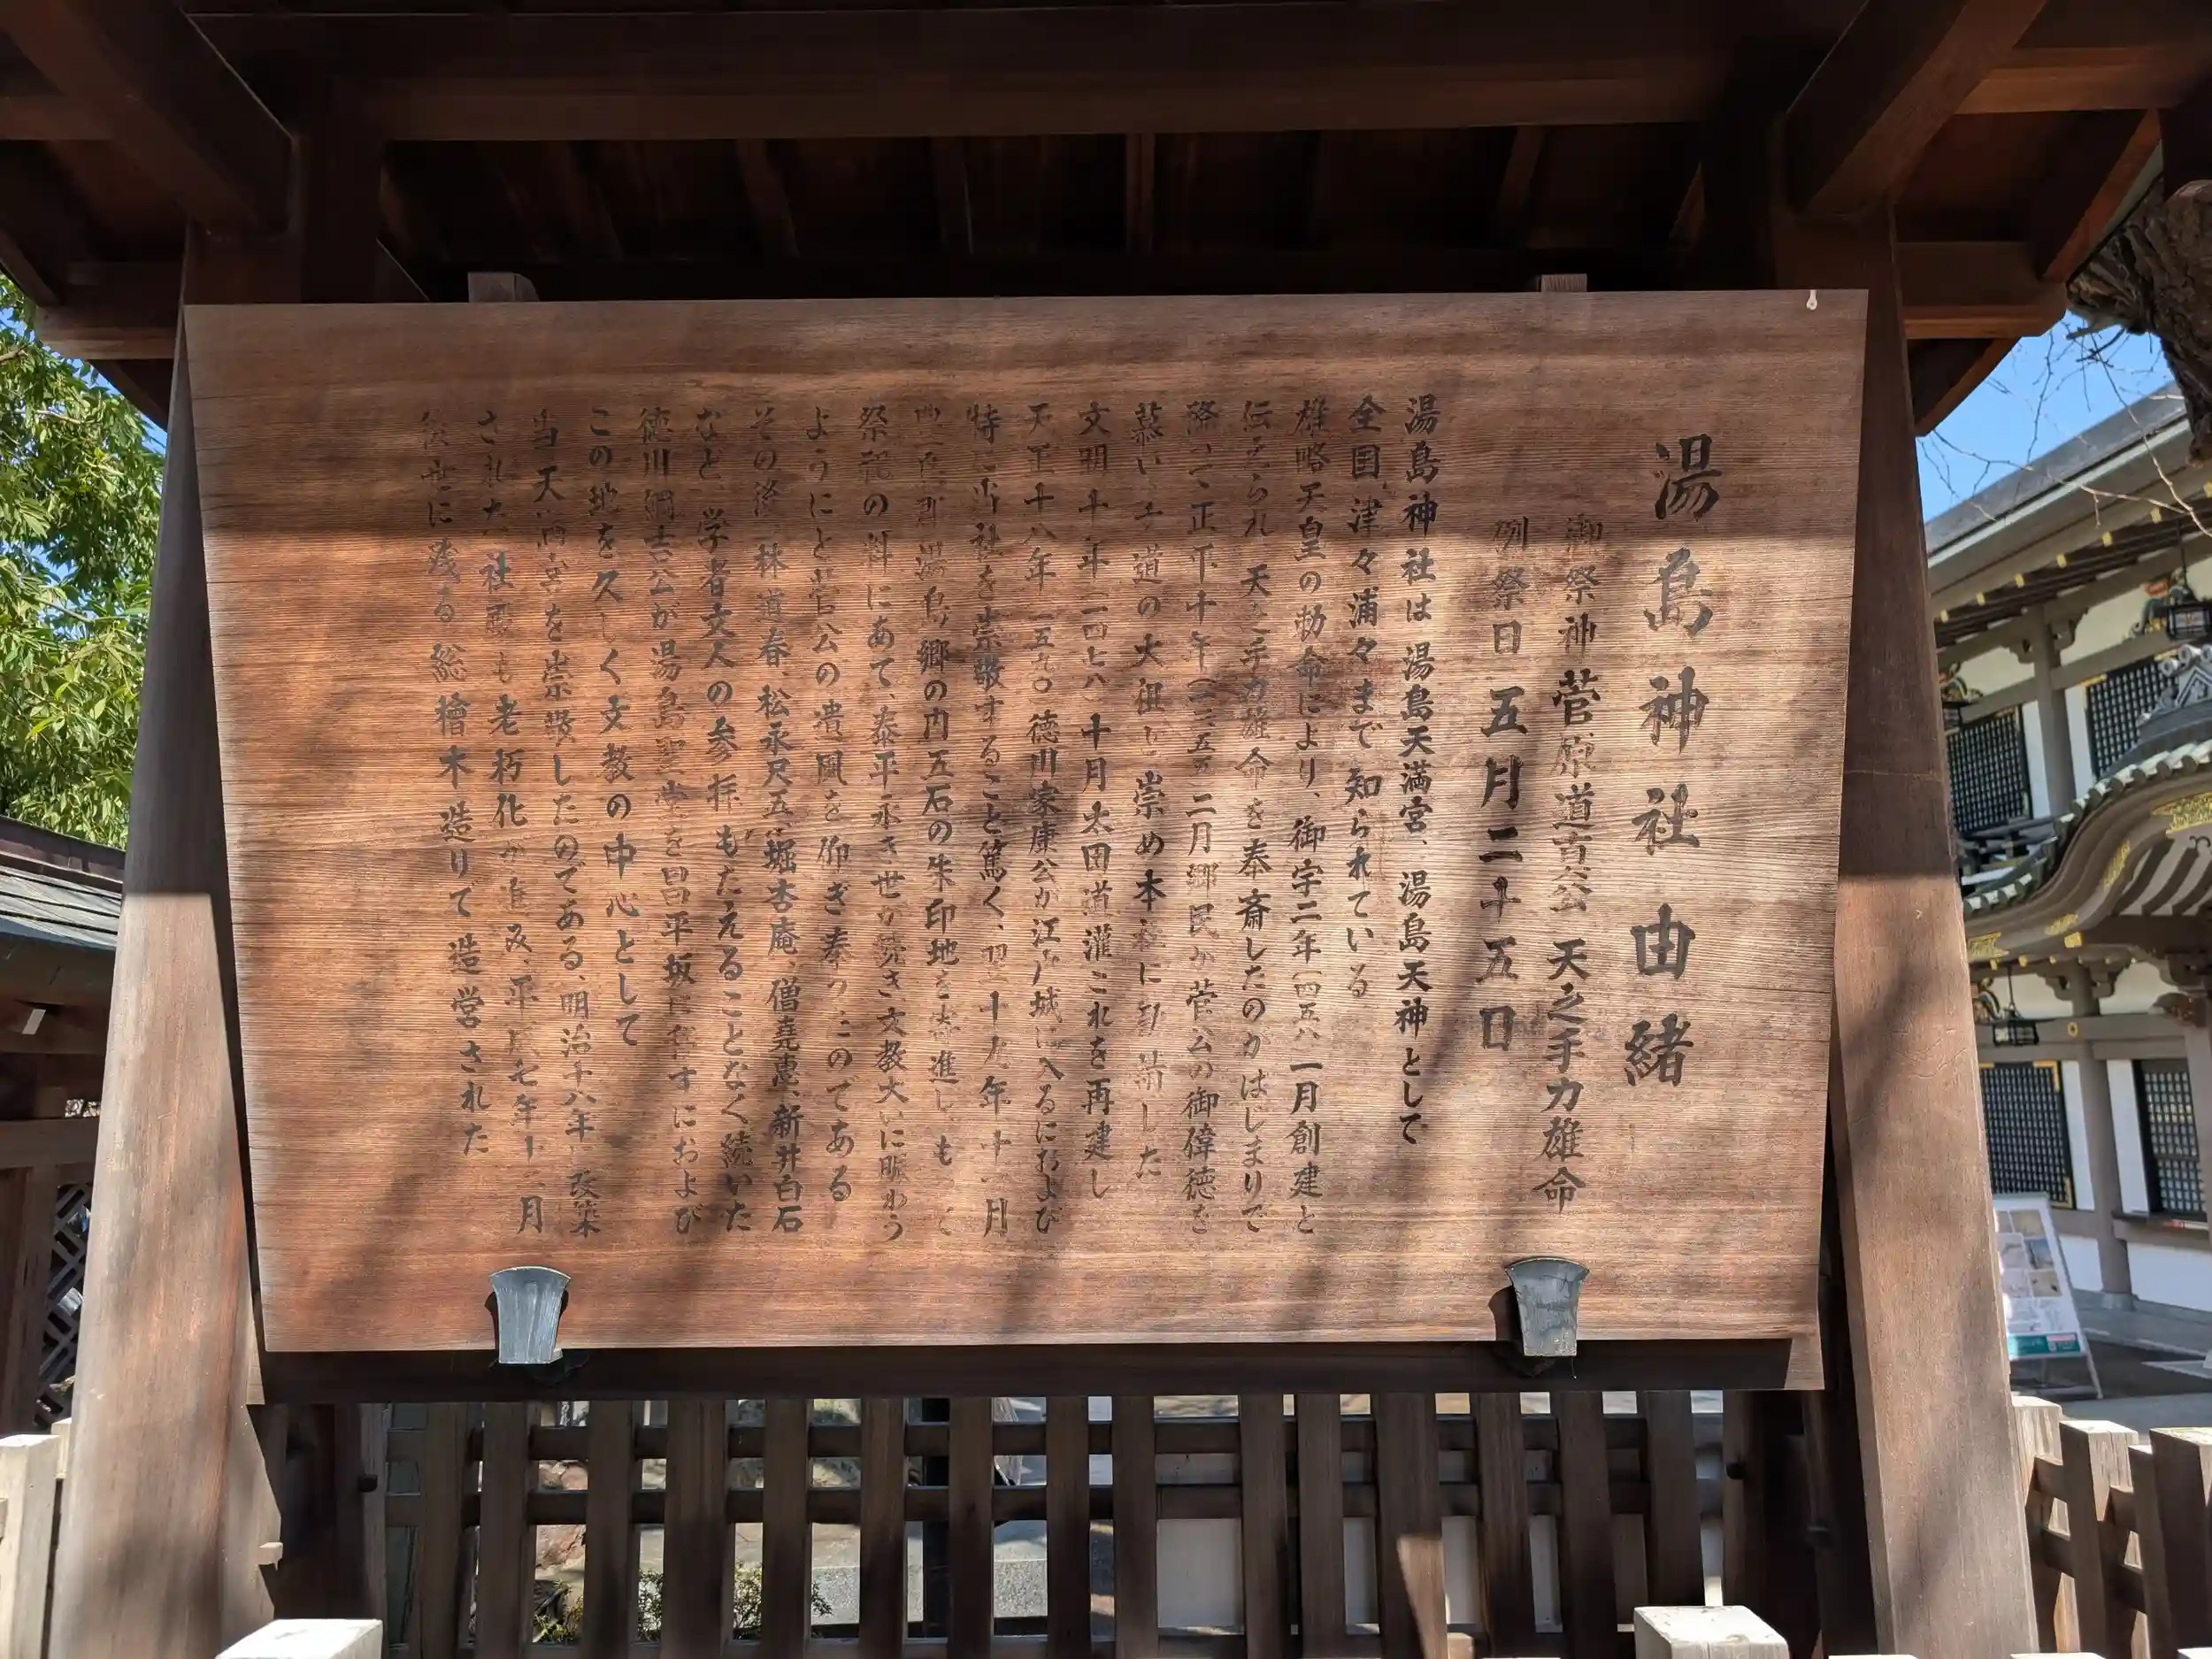 湯島神社由緒
御祭神 菅原道真公 天之手力雄命
例祭日 五月二十五日
湯島神社は 湯島天満宮、湯島天神として
全国 津々浦々まで知られている
雄略天皇の勅命により、御宇二年(四五八)一月創建と
伝えられ 天之手力雄命を奉斎したのがはじまりで
降って正平十年(一三五五)二月郷民が菅公の御偉徳を
慕い 文道の大祖と崇め本社に勧請した
文明十年(一四七八)十月太田道灌これを再建し
天正十八年(一五九〇)徳川家康公が江戸城に入るにおよび
特に当社を崇敬すること篤く、翌十九年十一月
豊島郡湯島郷の内五石の朱印地を寄進し もって
祭祀の料にあて、泰平永き世が続き文教大いに賑わう
ようにと菅公の遺風を仰ぎ奉ったのである
その後、林道春、松永尺五、堀杏庵、僧堯恵、新井白石
など 学者文人の参拝もたえることなく続いた
徳川綱吉公が湯島聖堂を昌平坂に移すにおよび
この地を久しく文教の中心として
当天満宮を崇敬したのである、明治十八年に改築
された社殿も老朽化が進み、平成七年十二月
後世に残る総檜木造りで造営された